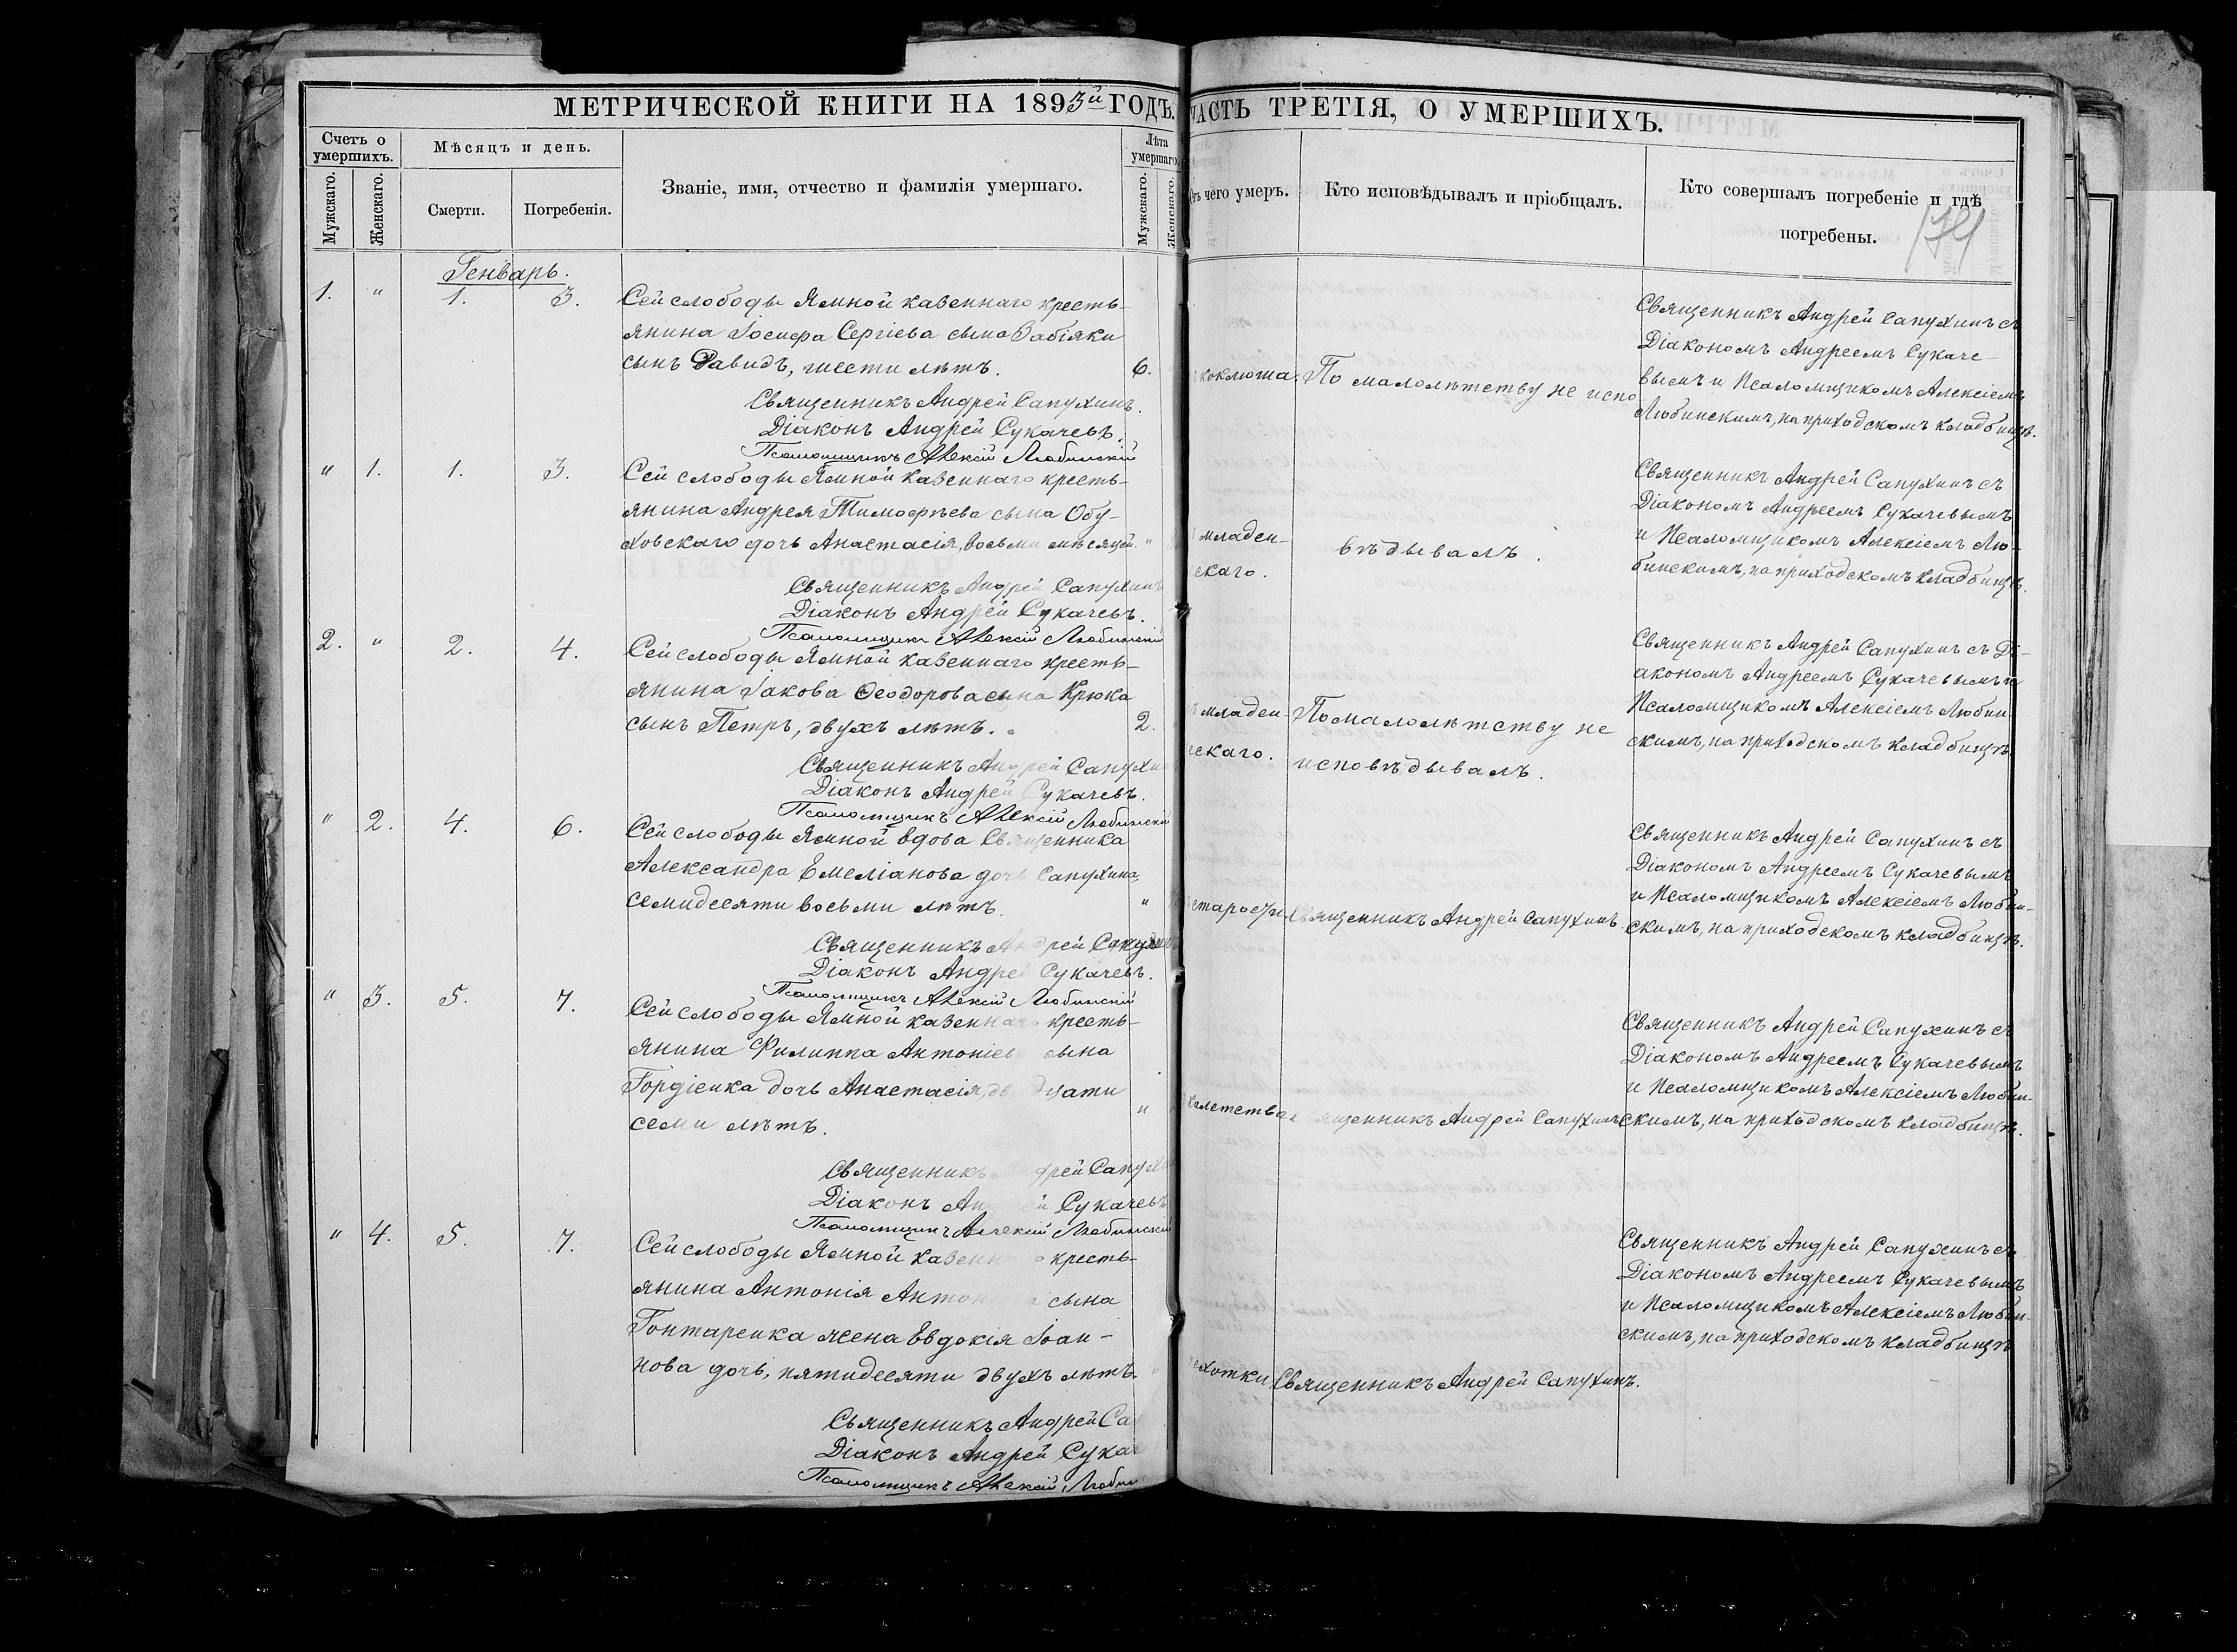 МЕТРИЧЕСКОЙ КНИГИ НА 1893й ГОДЪ.
Счетъ о умершихъ.
Мужскаго.
Женскаго.
Мѣсяцъ и день.
Смерти.
Погребенія.
Званіе, имя, отчество и фамилія умершаго.
Лѣта умершаго.
Мужскаго.
Женскаго.
Генварь.
1. " 1. 3. Сей слободы Ямной казеннаго кресть-
янина Іосифа Сергіева сына Забіяки
сынъ Давидъ, шести лѣтъ. 6.
Священникъ Андрей Сапухинъ.
Діаконъ Андрей Сукачевъ.
Псаломщикъ Алексій Любинскій
" 1. 1. 3. Сей слободы Ямной казеннаго кресть-
янина Андрея Тимофѣева сына Обу-
ховскаго дочь Анастасія, восьми мѣсяцей. "
Священникъ Андрей Сапухинъ
Діаконъ Андрей Сукачевъ.
Псаломщикъ Алексій Любинскій
2. " 2. 4. Сей слободы Ямной казеннаго кресть-
янина Іакова Ѳеодорова сына Крюка
сынъ Петръ, двухъ лѣтъ. 2.
Священникъ Андрей Сапухин
Діаконъ Андрей Сукачевъ.
Псаломщикъ Алексій Любинскій
" 2. 4. 6. Сей слободы Ямной вдова Священника
Александра Емеліанова дочь Сапухина,
семидесяти восьми лѣтъ. "
Священникъ Андрей Сапухин
Діаконъ Андрей Сукачевъ.
Псаломщикъ Алексій Любинскій
" 3. 5. 7. Сей слободы Ямной казеннаго кресть-
янина Филиппа Антоніева сына
Гордіенка дочь Анастасія, двадцати
семи лѣтъ. "
Священникъ Андрей Сапух
Діаконъ Андрей Сукачевъ
Псаломщикъ Алексій Любинскій
" 4. 5. 7. Сей слободы Ямной казеннаго кресть-
янина Антонія сына
Гонтаренка жена Евдокія Іоан-
нова дочь, пятидесяти двухъ лѣтъ. "
Священникъ Андрей Са
Діаконъ Андрей Сука
Псаломщикъ Алексій Любин
ЧАСТЬ ТРЕТІЯ, О УМЕРШИХЪ.
Отъ чего умеръ.
Кто исповѣдывалъ и пріобщалъ.
Кто совершалъ погребеніе и гдѣ
погребены.
Священникъ Андрей Сапухинъ съ
Діакономъ Андреемъ Сукаче-
коклюша. По малолѣтству не испо вымъ и Псаломщикомъ Алексіемъ
Любинскимъ, на приходскомъ кладбищѣ.
Священникъ Андрей Сапухинъ съ
Діакономъ Андреемъ Сукачевымъ
младен- вѣдывалъ. и Псаломщикомъ Алексіемъ Лю-
ческаго. бинскимъ, на приходскомъ кладбищѣ.
Священникъ Андрей Сапухинъ съ Ді-
акономъ Андреемъ Сукачевымъ и
младен- По малолѣтству не Псаломщикомъ Алексіемъ Любин-
ческаго. исповѣдывалъ. скимъ, на приходскомъ кладбищѣ.
Священникъ Андрей Сапухинъ съ
Діакономъ Андреемъ Сукачевымъ
старости Священникъ Андрей Сапухинъ. и Псаломщикомъ Алексіемъ Любин-
скимъ, на приходскомъ кладбищѣ.
Священникъ Андрей Сапухинъ съ
Діакономъ Андреемъ Сукачевымъ
и Псаломщикомъ Алексіемъ Любин-
Священникъ Андрей Сапухинъ скимъ, на приходскомъ кладбищѣ.
Священникъ Андрей Сапухинъ съ
Діакономъ Андреемъ Сукачевымъ
и Псаломщикомъ Алексіемъ Любин-
скимъ, на приходскомъ кладбищѣ
хотки Священникъ Андрей Сапухинъ.